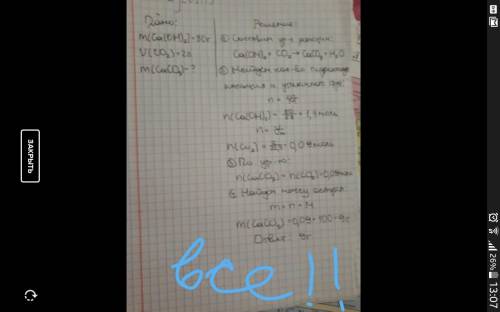 Дано:
m(Ca(OH)₂)=80г
V(CO₂)=2л
m(CaCO₃)-?
Решение:
① Составим ур-е реакции:
Ca(OH)₂ + CO₂ → CaCO₃ + H₂O
② Найдем кол-во гидроксида
кальция и углекислого газа:
n =
n(Ca(OH)₂) = = 1,1 моль
n =
= 0,09 моль
③ По ур-ю:
n(CaCO₃) = n(CO₂) = 0,09 моль
Найдем массу
m = n · M
m(CaCO₃) = 0,09 · 100 = 9г
Ответ: 9г
все!!
ЗАКРЫТЬ
26%
13:07